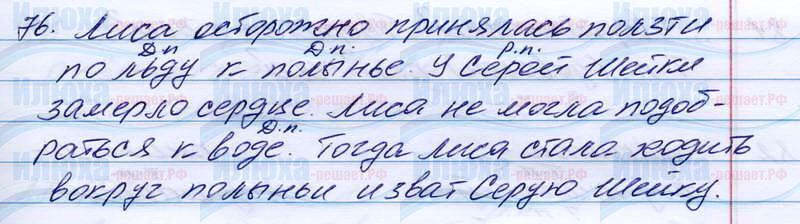 76. Лиса осторожно принялась ползти
Д.п. Д.п. Р.п.
по льду к полынье. У Серой Шейки
замерло сердце. Лиса не могла подоб-
Д.п.
раться к воде. Тогда лиса стала ходить
вокруг полыньи и зват Серую Шейку.